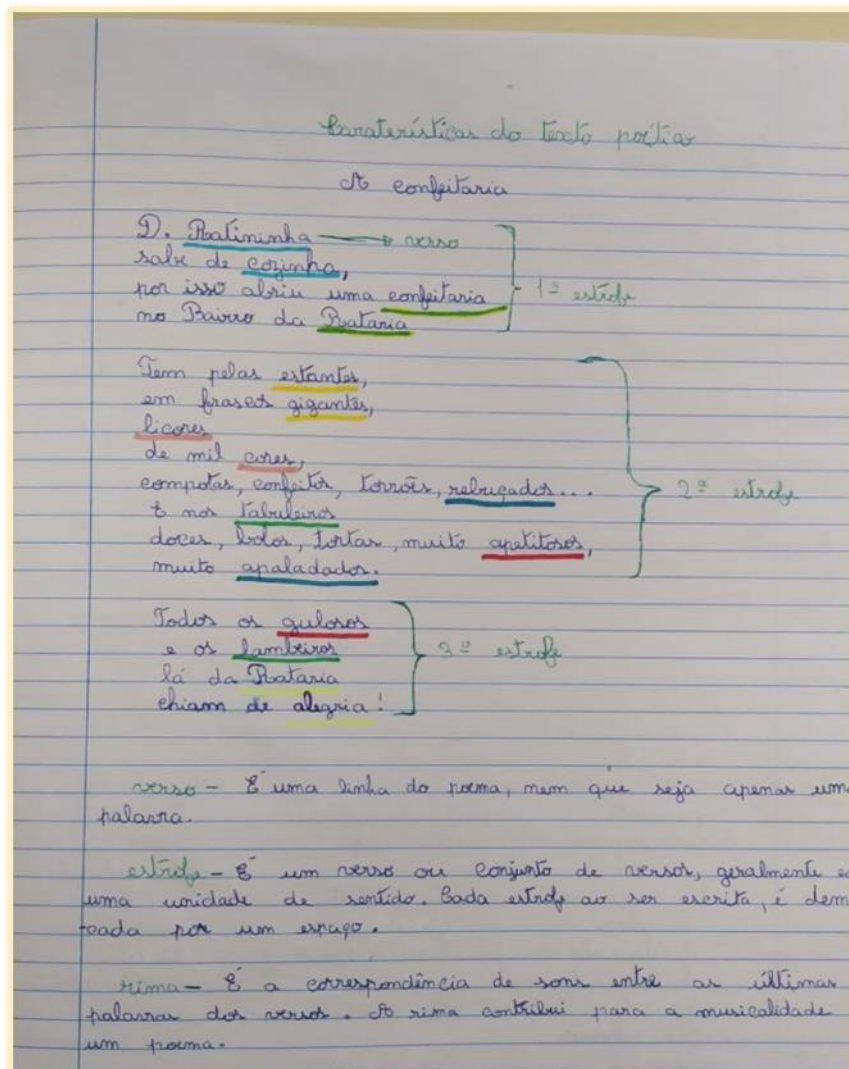 Caraterísticas do texto poético
A confeitaria
D. Ratininha → verso
sabe de cozinha,
por isso abriu uma confeitaria
no Bairro da Rataria
1ª estrofe
Tem pelas estantes,
em frascos gigantes,
licores
de mil cores,
compotas, confeitos, torrões, rebuçados...
E nos tabuleiros
doces, bolos, tortas, muito apetitosos,
muito apaladados.
2ª estrofe
Todos os gulosos
e os lambeiros
lá da Rataria
chiam de alegria!
3ª estrofe
verso - É uma linha do poema, nem que seja apenas uma
palavra.
estrofe - É um verso ou conjunto de versos, geralmente co
uma unidade de sentido. Cada estrofe ao ser escrita, é dem
cada por um espaço.
rima - É a correspondência de sons entre as últimas
palavras dos versos. A rima contribui para a musicalidade
um poema.